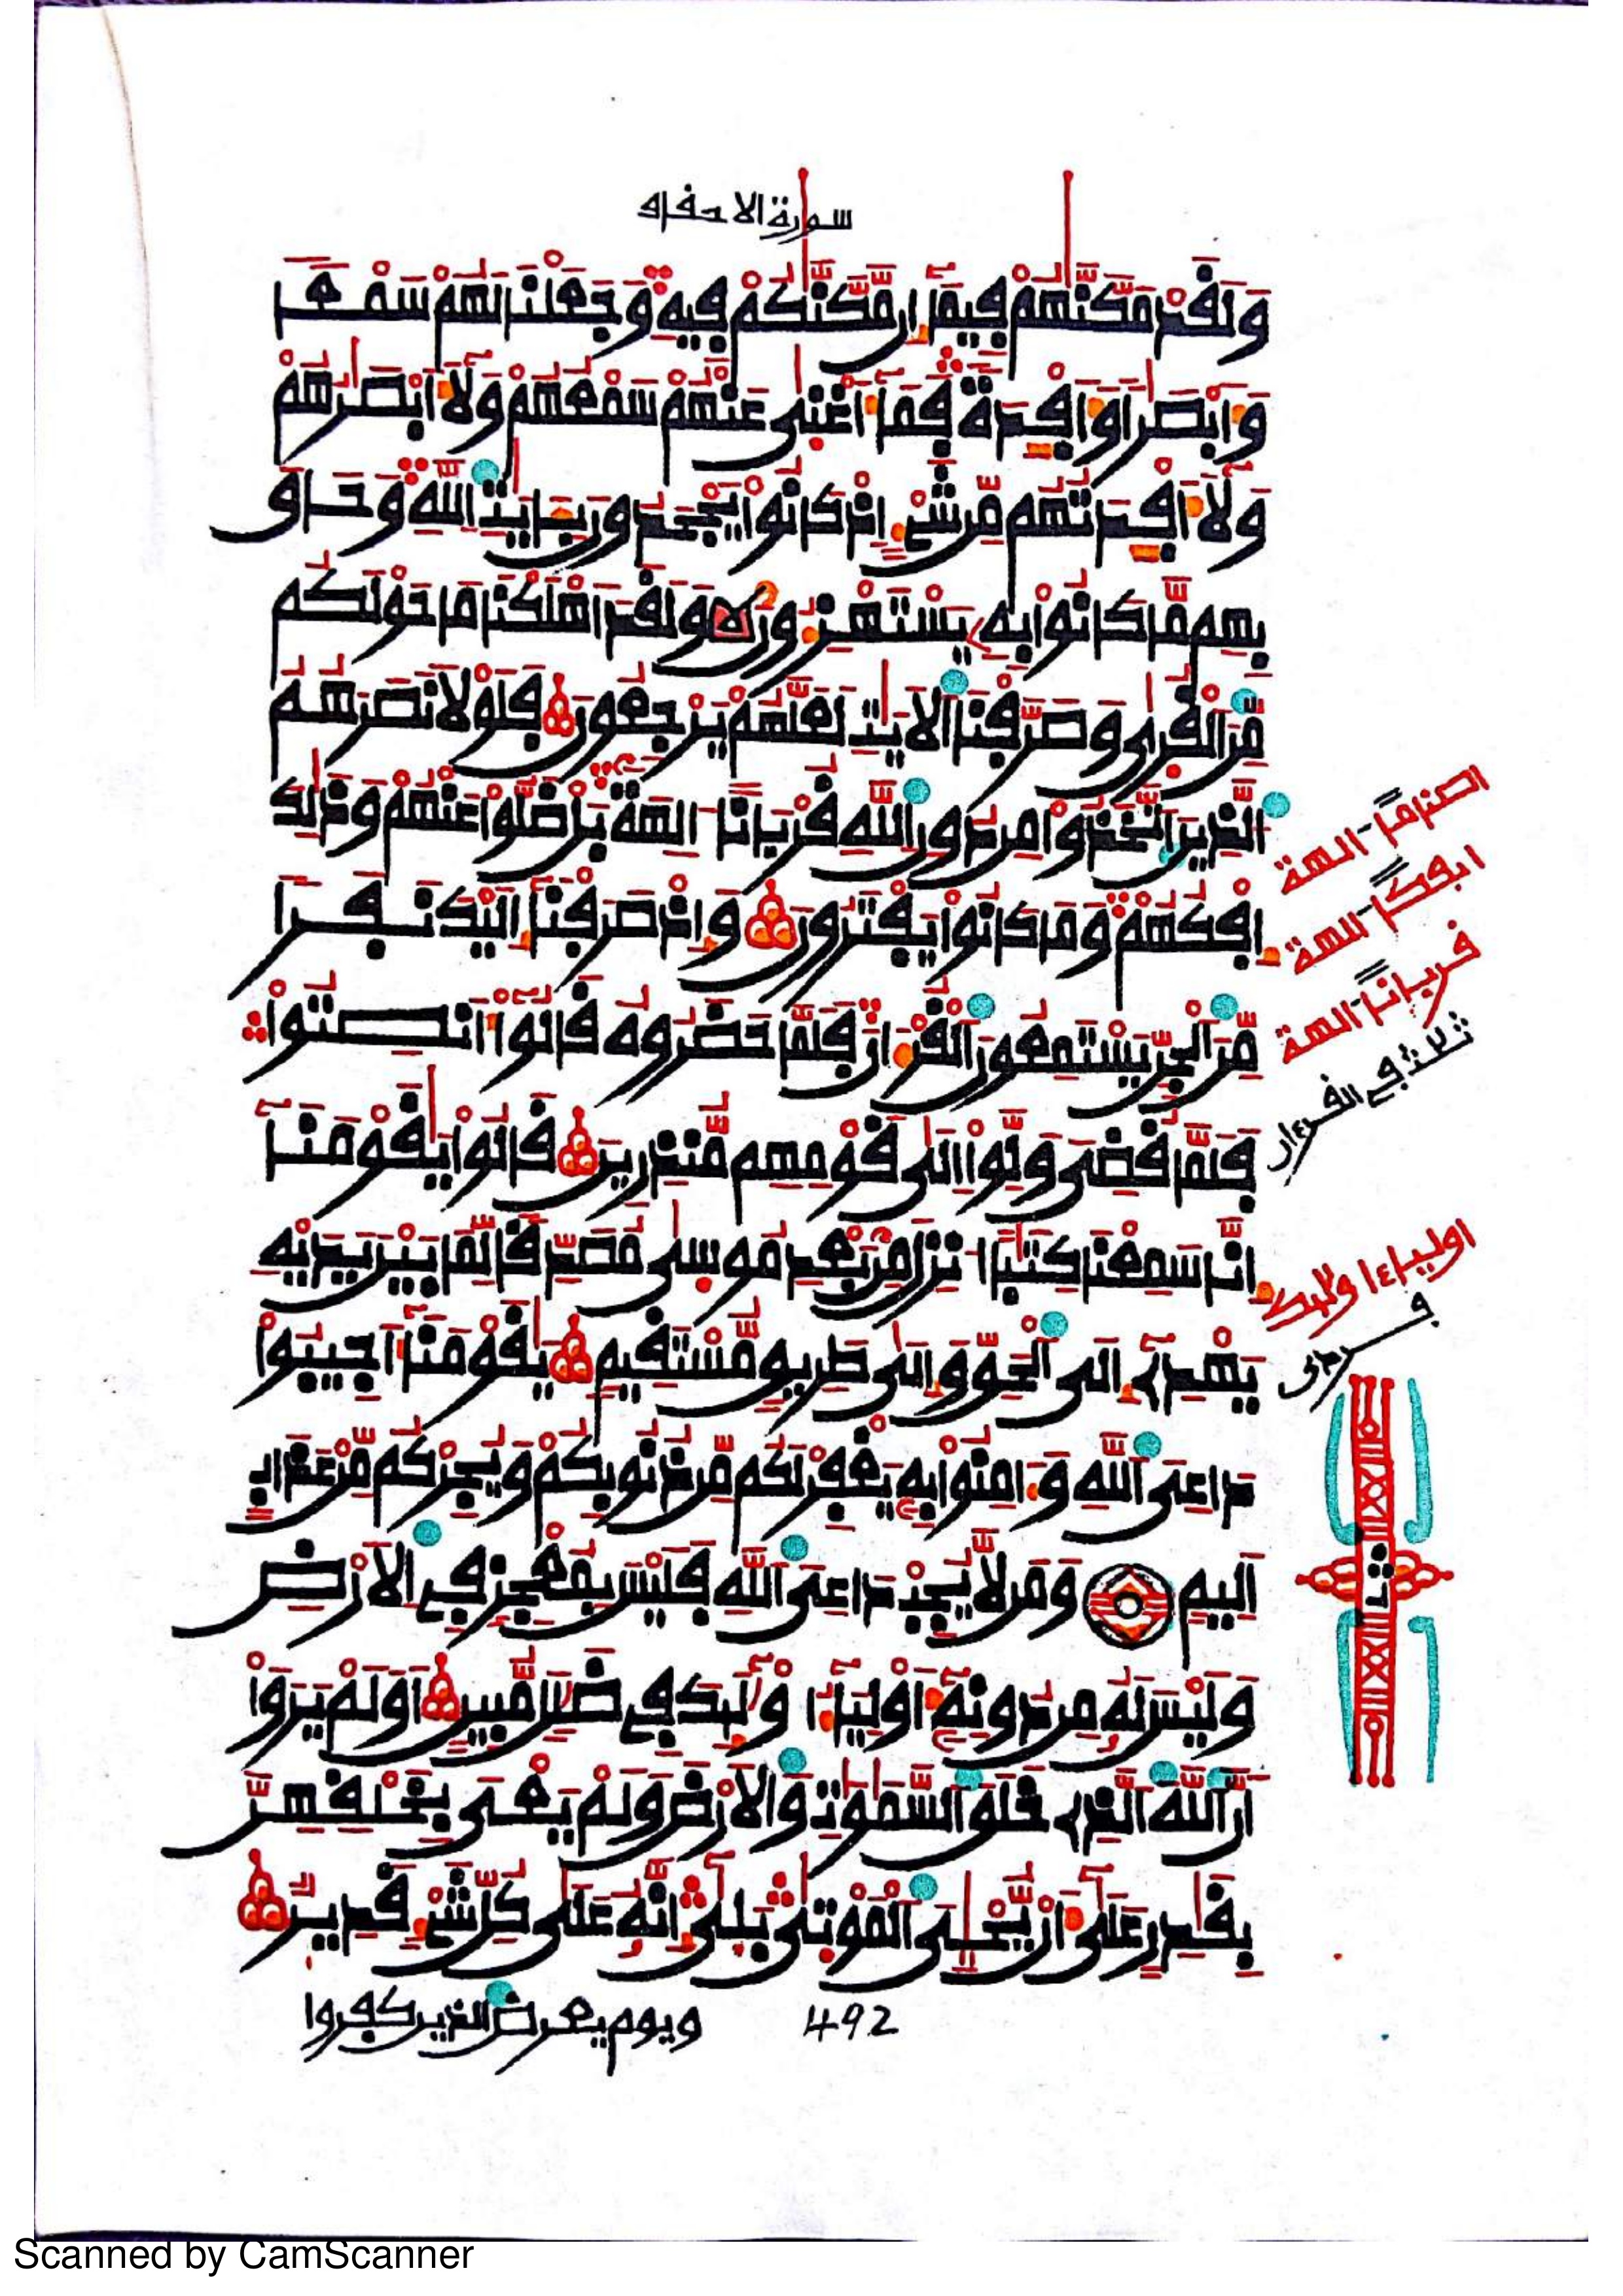 سورة الاحقاف
وَلَقَدْ مَكَّنَّٰهُمْ فِيمَآ إِن مَّكَّنَّٰكُمْ فِيهِ وَجَعَلْنَا لَهُمْ سَمْعًا
وَأَبْصَٰرًا وَأَفْـِٕدَةً فَمَآ أَغْنَىٰ عَنْهُمْ سَمْعُهُمْ وَلَآ أَبْصَٰرُهُمْ
وَلَآ أَفْـِٕدَتُهُم مِّن شَىْءٍ اِذْ كَانُواْ يَجْحَدُونَ بِـَٔايَٰتِ اِ۬للَّهِ وَحَاقَ
بِهِم مَّا كَانُواْ بِهِ يَسْتَهْزِءُونَ وَلَقَدَ اَهْلَكْنَا مَا حَوْلَكُم
مِّنَ اَ۬لْقُرَىٰ وَصَرَّفْنَا اَ۬لَايَٰتِ لَعَلَّهُمْ يَرْجِعُونَ فَلَوْلَا نَصَرَهُمُ
اُ۬لذِينَ اَ۪تَّخَذُواْ مِن دُونِ اِ۬للَّهِ قُرْبَانًا اٰلِهَةَۢ بَلْ ضَلُّواْ عَنْهُمْ وَذَٰلِكَ
إِفْكُهُمْ وَمَا كَانُواْ يَفْتَرُونَ وَإِذْ صَرَفْنَآ إِلَيْكَ نَفَرًا
مِّنَ اَ۬لْجِنِّ يَسْتَمِعُونَ اَ۬لْقُرْءَانَ فَلَمَّا حَضَرُوهُ قَالُوٓاْ أَنصِتُواْ
فَلَمَّا قُضِىَ وَلَّوِاْ اِلَىٰ قَوْمِهِم مُّنذِرِينَ قَالُواْ يَٰقَوْمَنَآ
إِنَّا سَمِعْنَا كِتَٰبًا اُنزِلَ مِنۢ بَعْدِ مُوسَىٰ مُصَدِّقًا لِّمَا بَيْنَ يَدَيْهِ
يَهْدِىٓ إِلَى اَ۬لْحَقِّ وَإِلَىٰ طَرِيقٍ مُّسْتَقِيمٍ يَٰقَوْمَنَآ أَجِيبُواْ
دَاعِىَ اَ۬للَّهِ وَءَامِنُواْ بِهِ يَغْفِرْ لَكُم مِّن ذُنُوبِكُمْ وَيُجِرْكُم مِّنْ عَذَابٍ
اَلِيمٍ وَمَن لَّا يُجِبْ دَاعِىَ اَ۬للَّهِ فَلَيْسَ بِمُعْجِزٍ فِى اِ۬لَارْضِ
وَلَيْسَ لَهُ مِن دُونِهِ أَوْلِيَآءُ اُوْلَٰٓئِكَ فِى ضَلَٰلٍ مُّبِينٍ اَوَلَمْ يَرَوَاْ
اَنَّ اَ۬للَّهَ اَ۬لَّذِى خَلَقَ اَ۬لسَّمَٰوَٰتِ وَالَارْضَ وَلَمْ يَعْىَ بِخَلْقِهِنَّ
بِقَٰدِرٍ عَلَىٰٓ أَن يُّحْۦِىَ اَ۬لْمَوْتَىٰ بَلَىٰٓ إِنَّهُ عَلَىٰ كُلِّ شَىْءٍ قَدِيرٌ
492
ويوم يعرض الذين كفروا
اصناما ـالهة
ايفكا ـالهة
قرباناً ـالهة
ثلاث في القرءان
اولياء اولىك
فردى
ثمن
Scanned by CamScanner